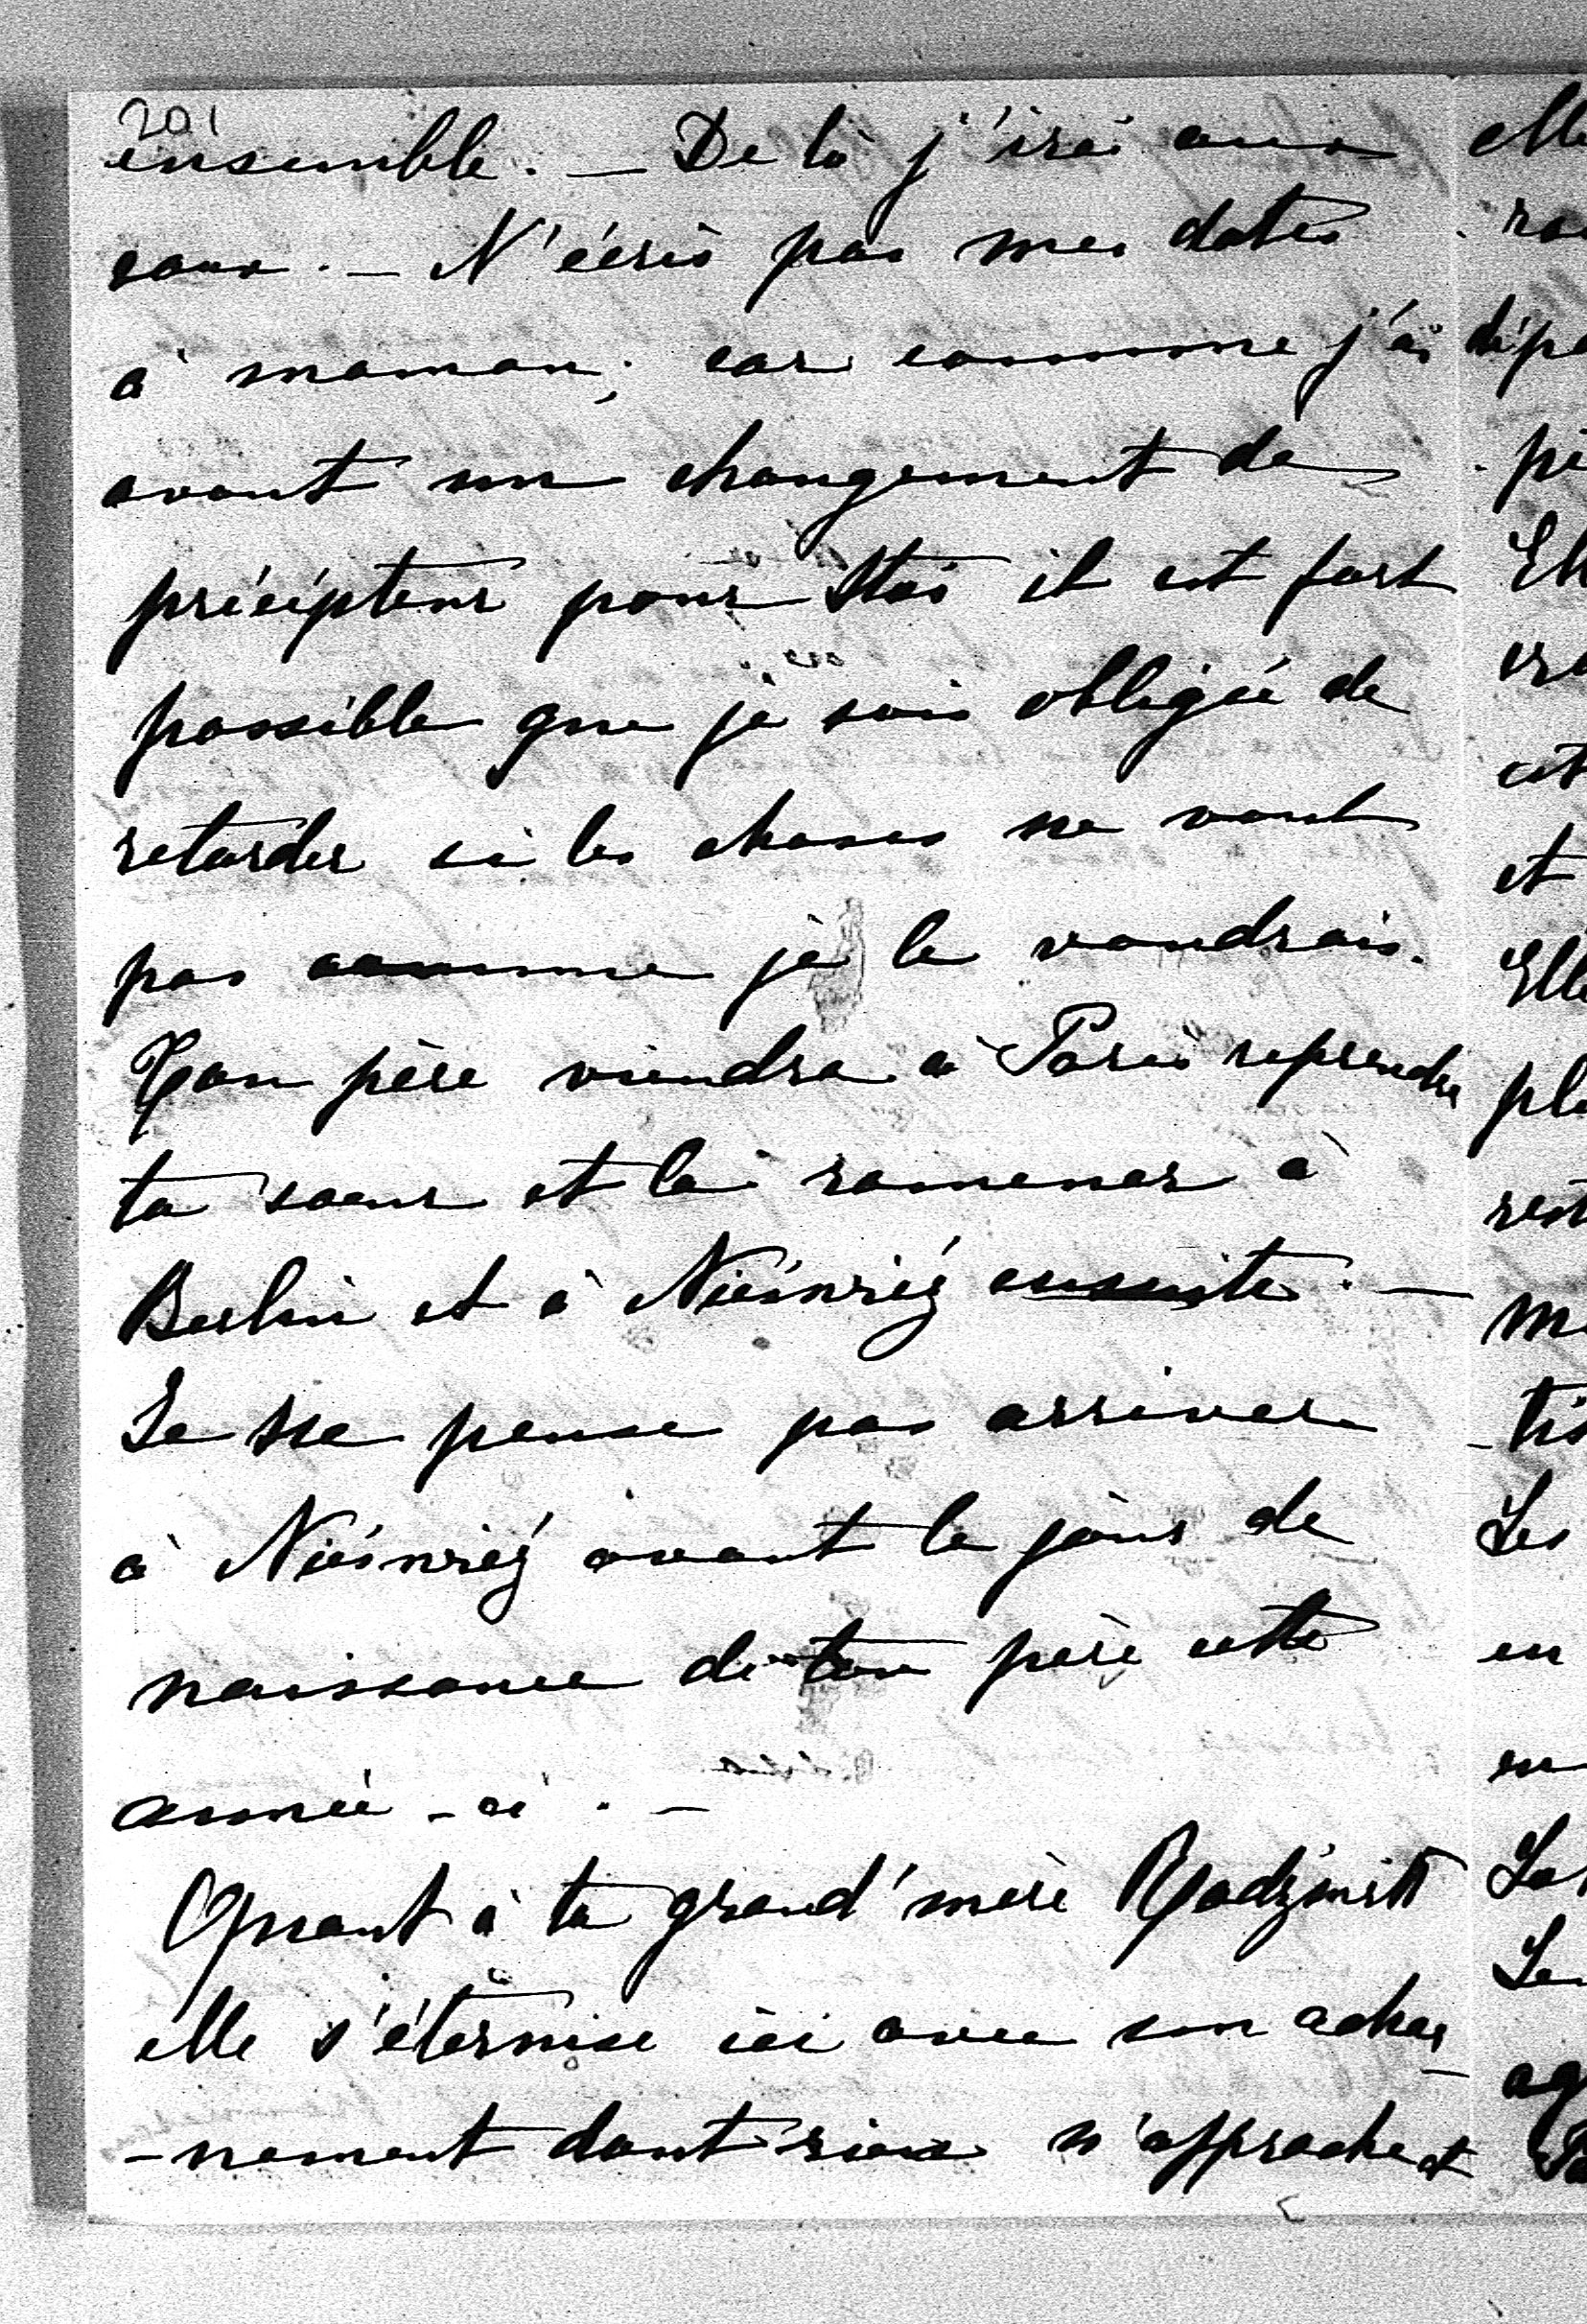 201
ensemble. — De là j'irai aux
eaux. — N'écris pas mes dates
à maman; car comme j'ai
avant un changement de
précepteur pour Stas il est fort
possible que je sois obligée de
retarder si les choses ne vont
pas comme je le voudrais.
Ton père viendra à Paris reprendre
ta soeur et la ramener à
Berlin et à Nieświéź ensuite. —
Je ne pense pas arriver
à Nieświéź avant le jour de
naissance de ton père cette
année-ci. —
Quant à ta grand'mère Radziwill
elle s'éternise ici avec son achar
-nement dont rien n'approche et
elle
et
Elle
Les
en